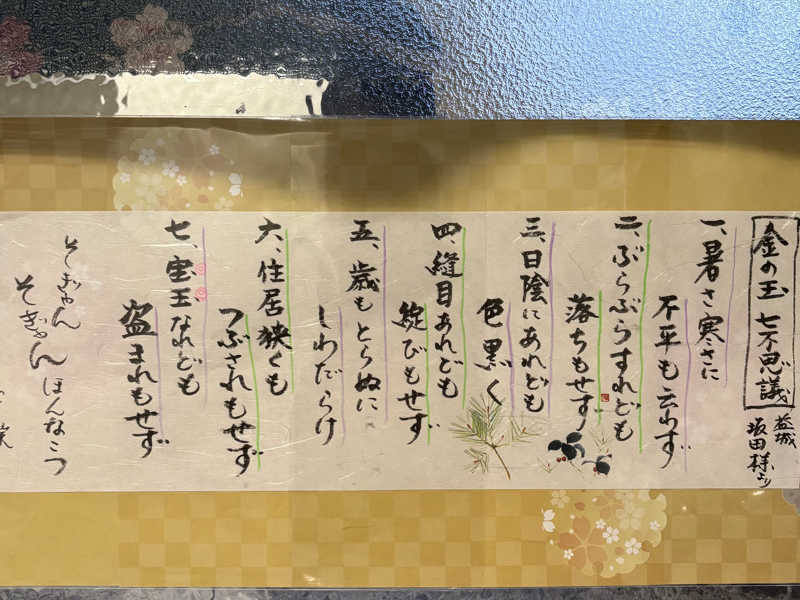 金の玉七不思議
益城
坂田様より
一、暑さ寒さに
不平も云わず
二、ぶらぶらすれども
落ちもせず
三、日陰にあれども
色黒く
四、縫目あれども
綻びもせず
五、歳もとらぬに
しわだらけ
六、住居狭くも
つぶされもせず
七、宝玉なれども
盗まれもせず
そぎゃん
そぎゃん
ほんなこつ